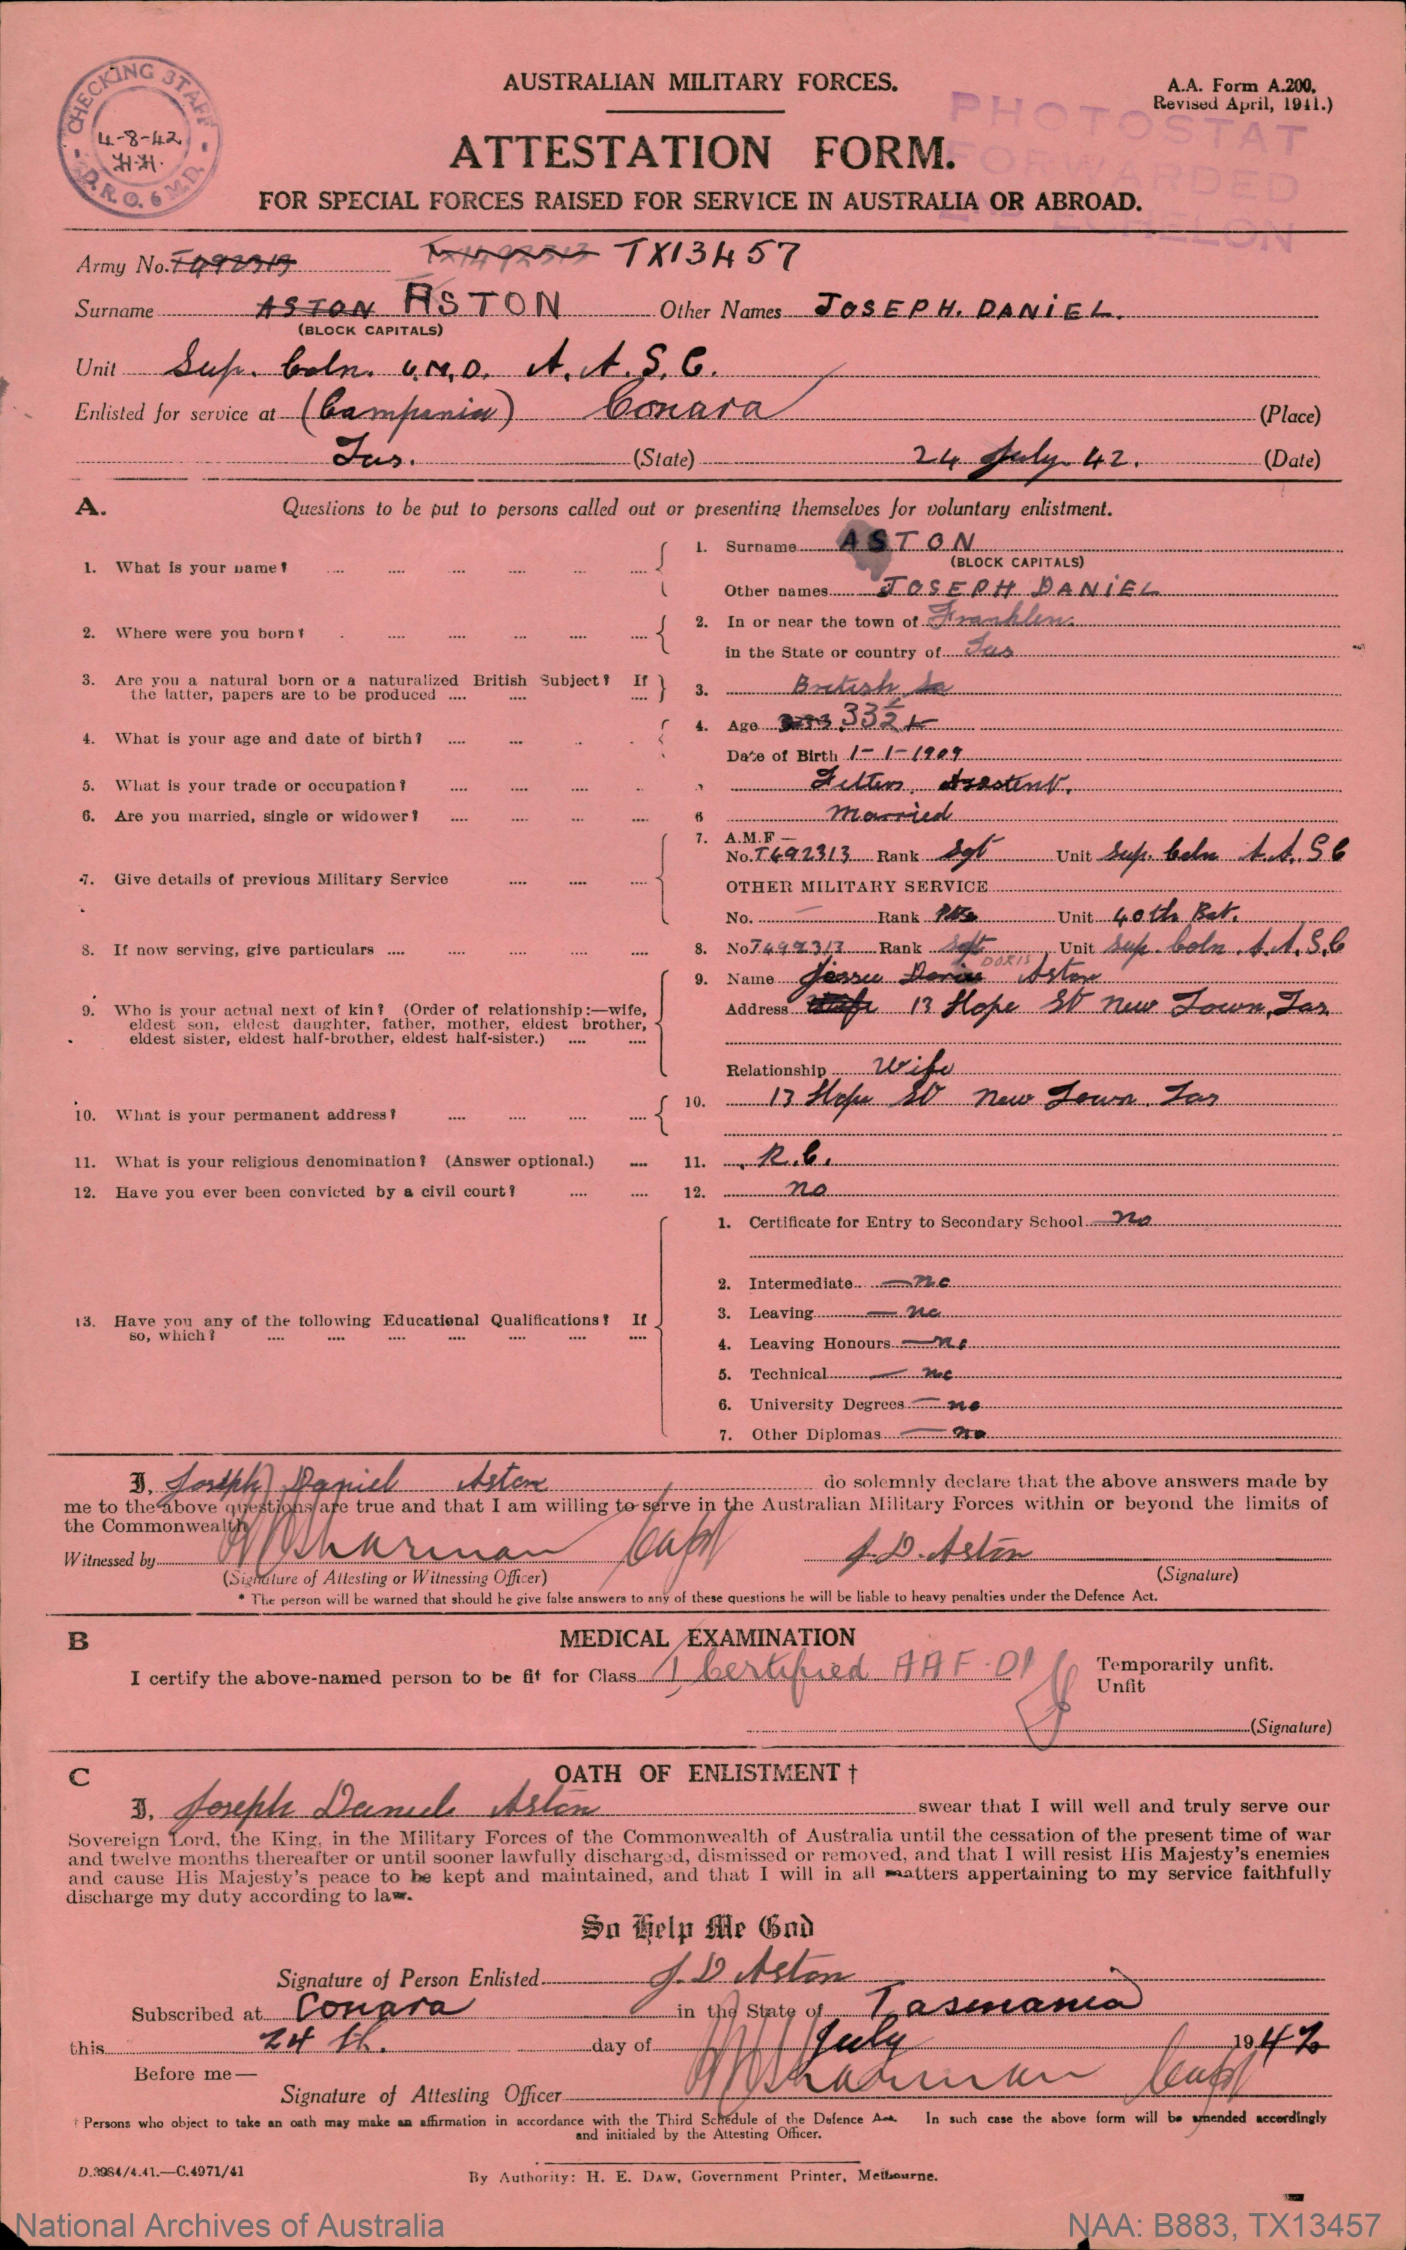 CHECKING STAFF
4-8-42
H.H.
D.R.O. 6 M.D.
AUSTRALIAN MILITARY FORCES.
A.A. Form A.200.
Revised April, 1941.)
PHOTOSTAT
FORWARDED
2ND ECHELON
ATTESTATION FORM.
FOR SPECIAL FORCES RAISED FOR SERVICE IN AUSTRALIA OR ABROAD.
Army No. T492313 TX13457
Surname ASTON ASTON Other Names JOSEPH. DANIEL.
(BLOCK CAPITALS)
Unit Sup. Coln. A.A.S.C.
Enlisted for service at (Campania) Conara (Place)
Tas. (State) 24 July 42. (Date)
A. Questions to be put to persons called out or presenting themselves for voluntary enlistment.
1. What is your name?
1. Surname ASTON
(BLOCK CAPITALS)
Other names JOSEPH DANIEL
2. Where were you born?
2. In or near the town of Franklin.
in the State or country of Tas
3. Are you a natural born or a naturalized British Subject? If
the latter, papers are to be produced
3. British
4. What is your age and date of birth?
4. Age 33½
Date of Birth 1-1-1909
5. What is your trade or occupation?
Fitters Assistent.
6. Are you married, single or widower?
6 Married
7. Give details of previous Military Service
7. A.M.F—
No. T492313 Rank Sgt Unit Sup. Coln A.A.S.C
OTHER MILITARY SERVICE
No. — Rank Pte Unit 40th Bat.
8. If now serving, give particulars
8. No T492313 Rank Sgt Unit Sup. Coln. A.A.S.C
9. Who is your actual next of kin? (Order of relationship:—wife,
eldest son, eldest daughter, father, mother, eldest brother,
eldest sister, eldest half-brother, eldest half-sister.)
9. Name Jessie DORIS Aston
Address Wife 13 Hope St New Town, Tas.
Relationship Wife
10. What is your permanent address?
10. 13 Hope St New Town. Tas
11. What is your religious denomination? (Answer optional.)
11. R.C.
12. Have you ever been convicted by a civil court?
12. no
13. Have you any of the following Educational Qualifications? If
so, which?
1. Certificate for Entry to Secondary School no
2. Intermediate — no
3. Leaving — no
4. Leaving Honours — no
5. Technical — no
6. University Degrees — no
7. Other Diplomas — no
I, Joseph Daniel Aston do solemnly declare that the above answers made by
me to the above questions are true and that I am willing to serve in the Australian Military Forces within or beyond the limits of
the Commonwealth
Witnessed by Sharman Capt J. D. Aston
(Signature of Attesting or Witnessing Officer) (Signature)
* The person will be warned that should he give false answers to any of these questions he will be liable to heavy penalties under the Defence Act.
B MEDICAL EXAMINATION
I certify the above-named person to be fit for Class I Certified AAF-DI
Temporarily unfit.
Unfit
(Signature)
C OATH OF ENLISTMENT †
I, Joseph Daniel Aston swear that I will well and truly serve our
Sovereign Lord, the King, in the Military Forces of the Commonwealth of Australia until the cessation of the present time of war
and twelve months thereafter or until sooner lawfully discharged, dismissed or removed, and that I will resist His Majesty's enemies
and cause His Majesty's peace to be kept and maintained, and that I will in all matters appertaining to my service faithfully
discharge my duty according to law.
So Help Me God
Signature of Person Enlisted J. D Aston
Subscribed at Conara in the State of Tasmania
this 24 th. day of July 1942
Before me—
Signature of Attesting Officer Sharman Capt
† Persons who object to take an oath may make an affirmation in accordance with the Third Schedule of the Defence Act. In such case the above form will be amended accordingly
and initialed by the Attesting Officer.
D.3984/4.41.—C.4971/41
By Authority: H. E. DAW, Government Printer, Melbourne.
National Archives of Australia
NAA: B883, TX13457